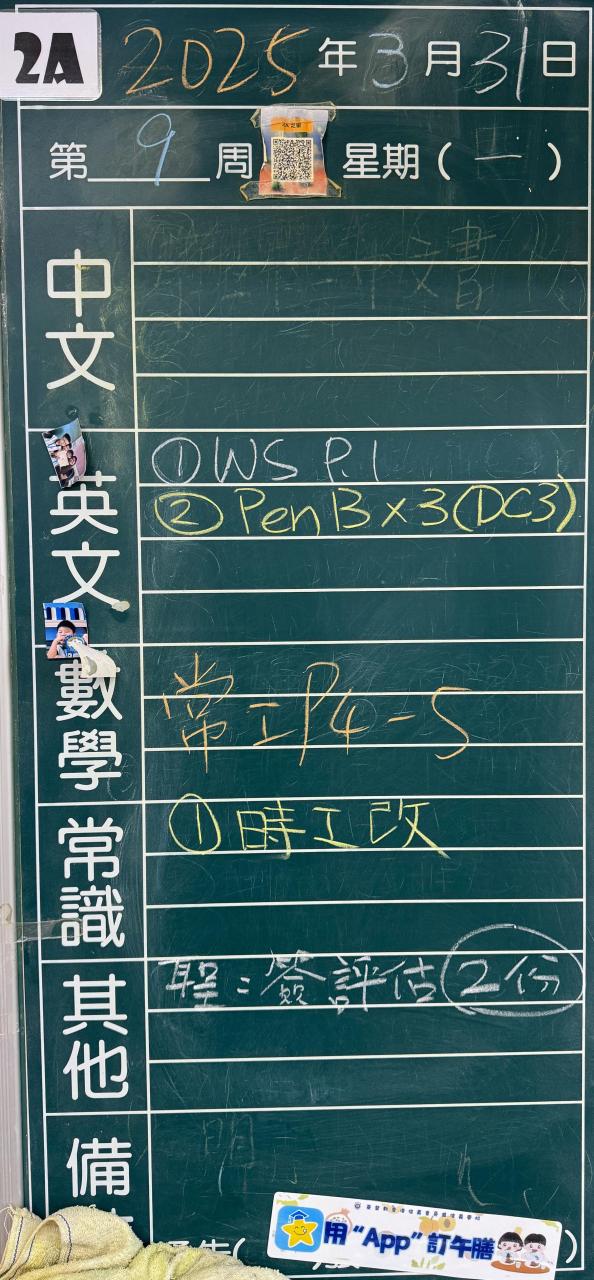 2A
2025年3月31日
第9周 星期(一)
中文
英文
①WS P.1
②Pen B x 3(DC3)
數學
常工P4-5
常識
①時工改
其他
聖：簽評估2份
備
用“App”訂午膳